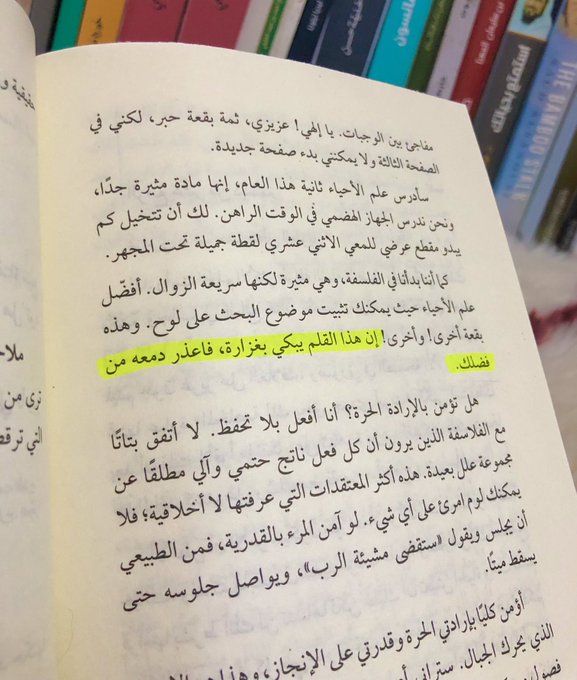 مفاجئ بين الوجبات. يا إلهي! عزيزي، ثمة بقعة حبر، لكني في
الصفحة الثالثة ولا يمكنني بدء صفحة جديدة.
سأدرس علم الأحياء ثانية هذا العام، إنها مادة مثيرة جدًا،
ونحن ندرس الجهاز الهضمي في الوقت الراهن. لك أن تتخيل كم
يبدو مقطع عرضي للمعي الاثني عشري لقطة جميلة تحت المجهر.
كما أننا بدأنا في الفلسفة، وهي مثيرة لكنها سريعة الزوال. أفضّل
علم الأحياء حيث يمكنك تثبيت موضوع البحث على لوح. وهذه
بقعة أخرى! وأخرى! إن هذا القلم يبكي بغزارة، فاعذر دمعه من
فضلك.
هل تؤمن بالإرادة الحرة؟ أنا أفعل بلا تحفظ. لا أتفق بتاتًا
مع الفلاسفة الذين يرون أن كل فعل ناتج حتمي وآلي مطلقًا عن
مجموعة علل بعيدة. هذه أكثر المعتقدات التي عرفتها لا أخلاقية؛ فلا
يمكنك لوم امرئ على أي شيء. لو آمن المرء بالقدرية، فمن الطبيعي
أن يجلس ويقول «ستقضى مشيئة الرب»، ويواصل جلوسه حتى
يسقط ميتًا.
أؤمن كليًا بإرادتي الحرة وقدرتي على الإنجاز، وهذا هو
الذي يحرك الجبال. ستراني
فصول
ترى من
التي
استمتع بحياتك
THE BAMBOO STALK